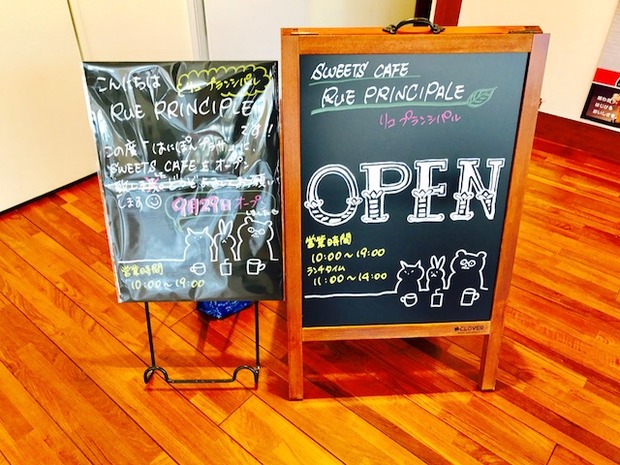 こんにちは
リュ プランシパル
RUE PRINCIPALE
です!
この度「はにぽんプラザ」に、
SWEETS CAFE オープン
しまる
9月29日オープン
営業時間
10:00~19:00
SWEETS CAFE
RUE PRINCIPALE
リュ プランシパル
OPEN
営業時間
10:00~19:00
ランチタイム
11:00~14:00
CLOVER